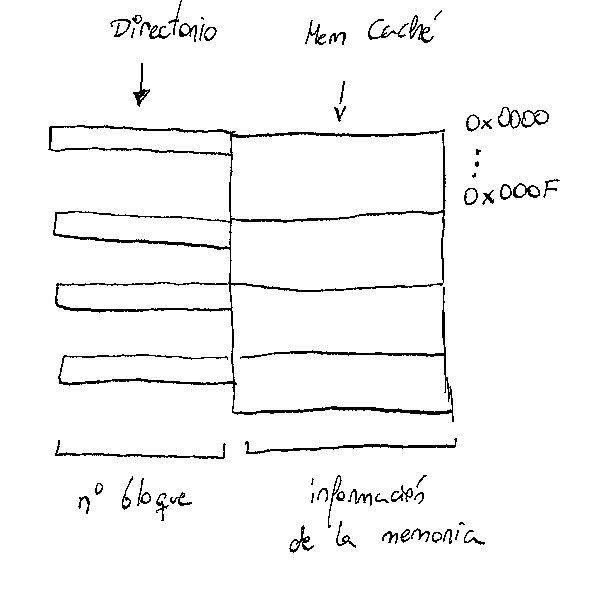 Directorio
Mem Caché
0x0000
⋮
0x000F
nº bloque
información
de la memoria